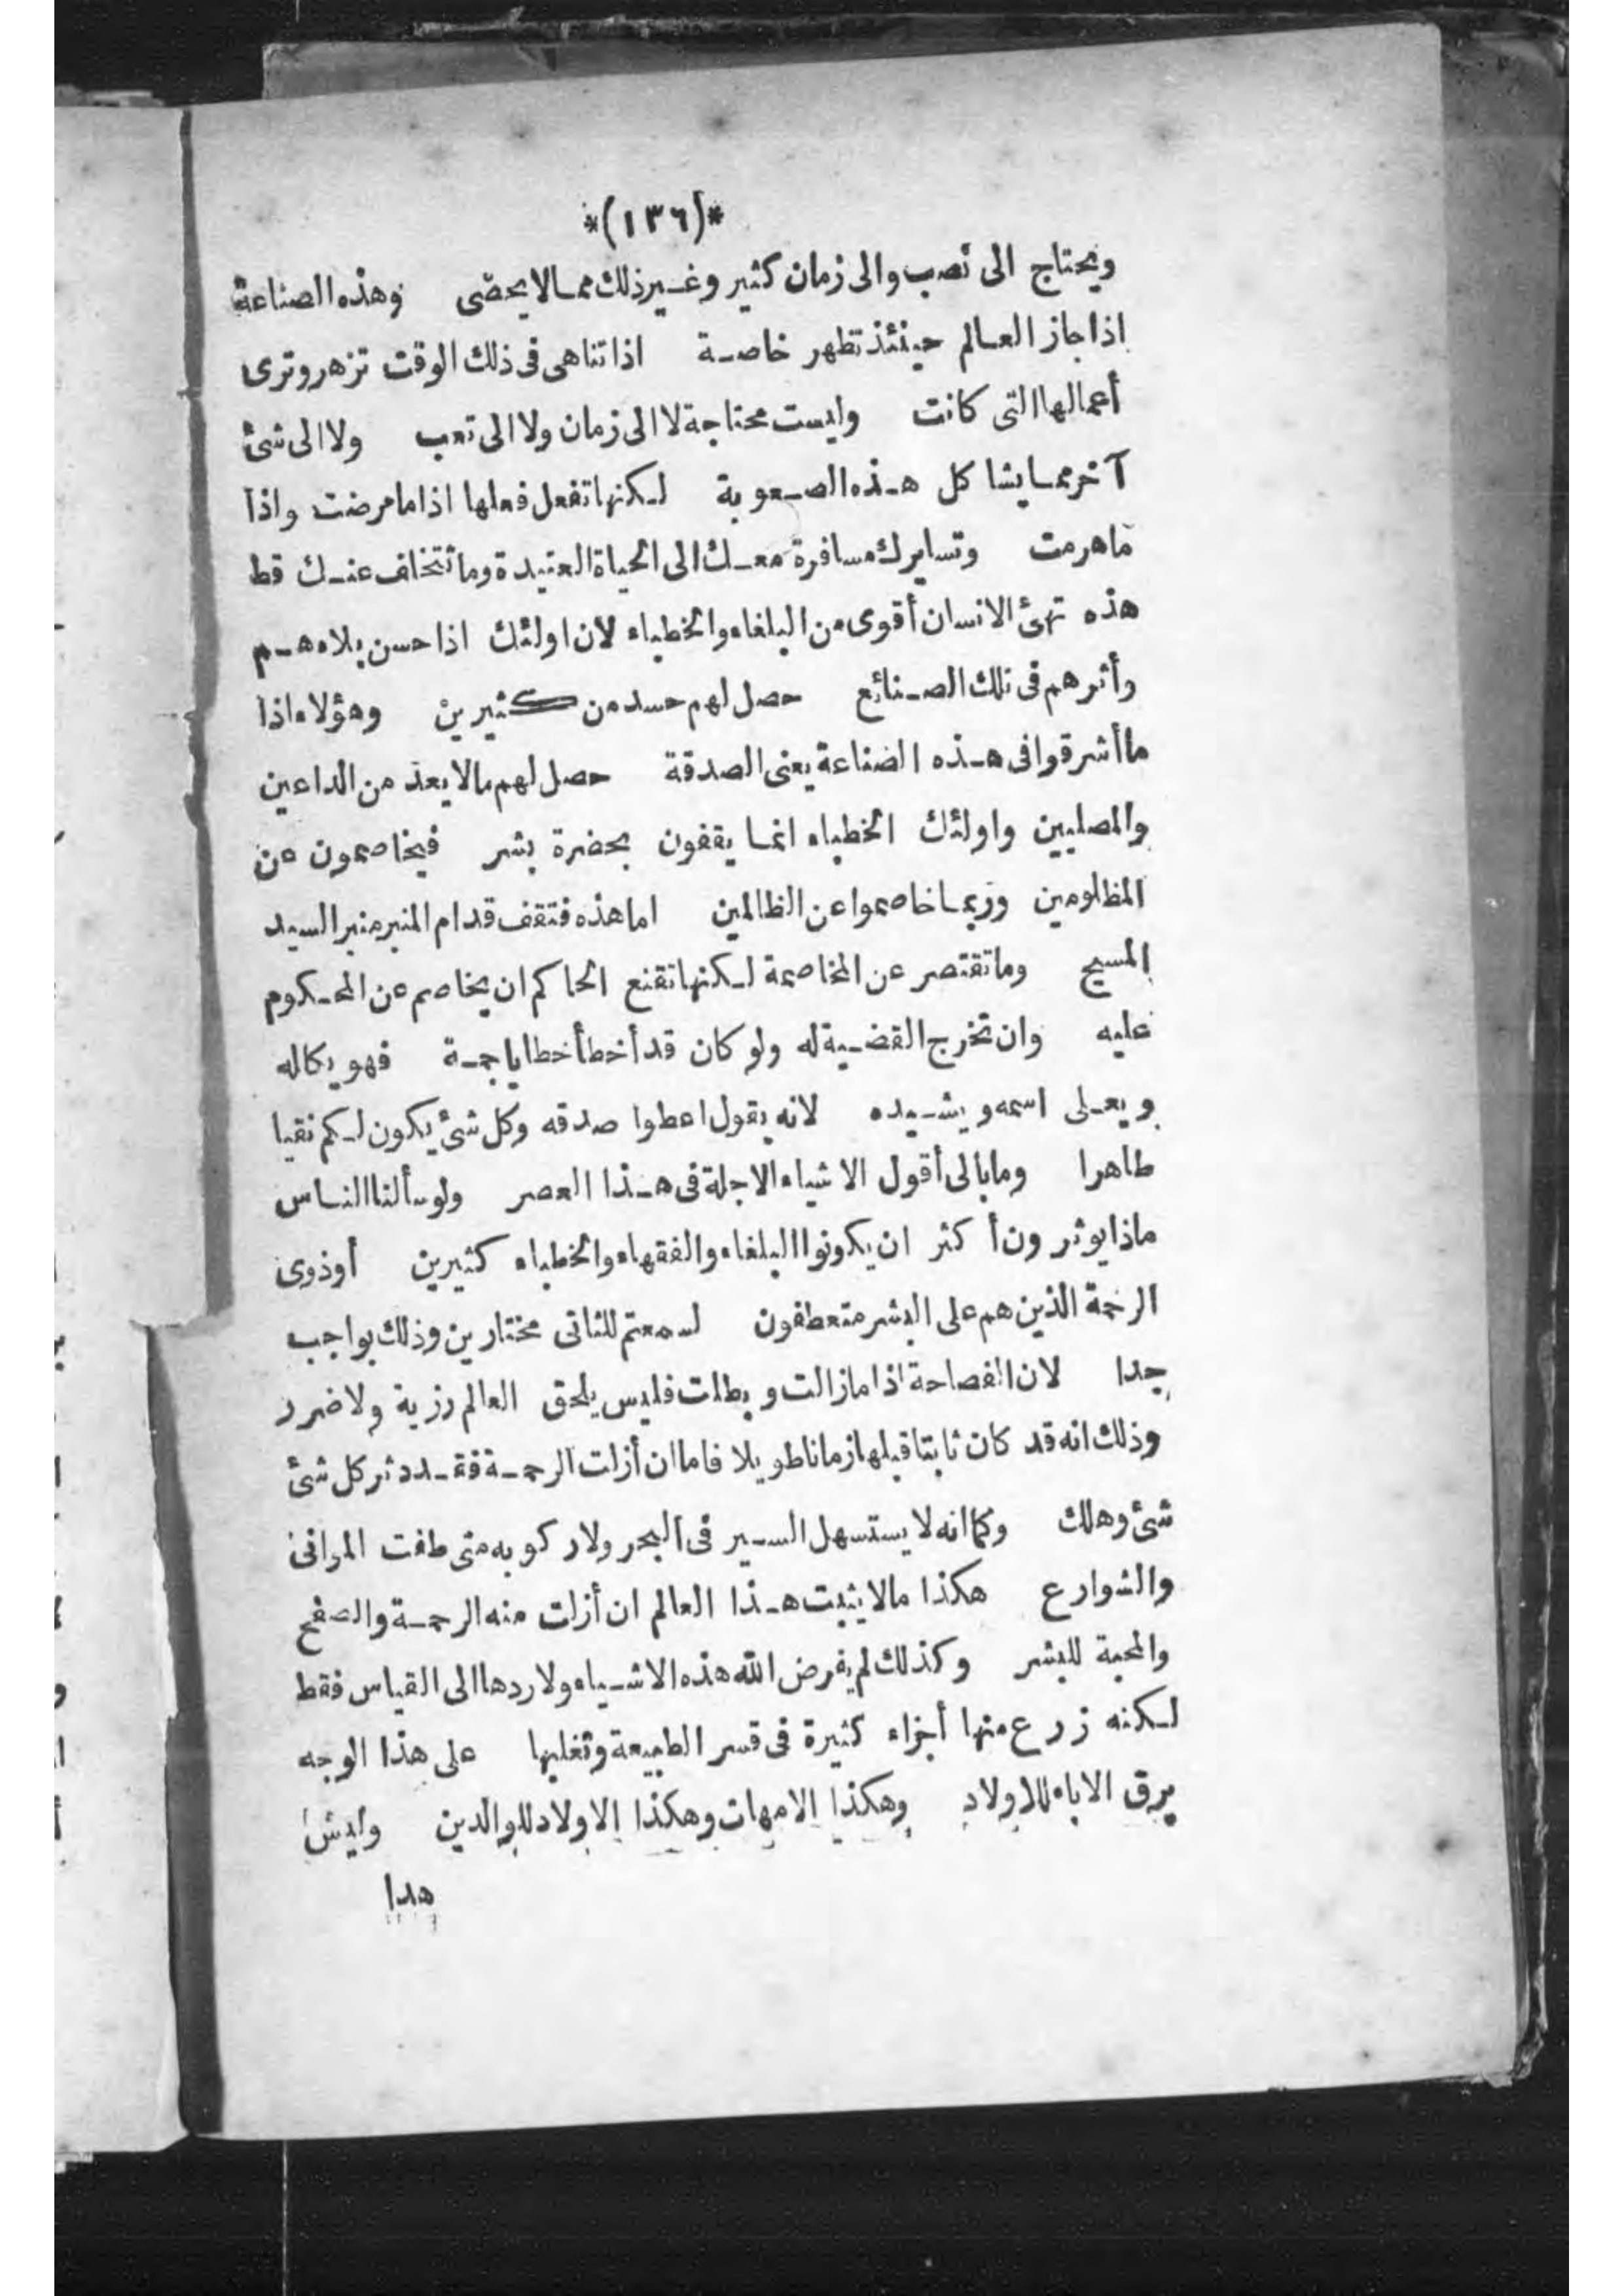 *(١٣٦)*
ويحتاج الى نصب والى زمان كثير وغير ذلك مما لا يحصى وهذه الصناعة
اذا جاز العالم حينئذ تظهر خاصة اذا تناهى فى ذلك الوقت تزهر وترى
أعمالها التى كانت وليست محتاجة لا الى زمان ولا الى تعب ولا الى شئ
آخر مما يشا كل هذه الصعوبة لكنها تفعل فعلها اذا ما مرضت واذا
ما هرمت وتسايرك مسافرة معك الى الحياة العتيدة وما تتخلف عنك قط
هذه تهئ الانسان أقوى من البلغاء والخطباء لان اولئك اذا حسن بلاءهم
وأثرهم فى تلك الصنائع حصل لهم حسد من كثيرين وهؤلاء اذا
ما أشرقوا فى هذه الصناعة يعنى الصدقة حصل لهم ما لا يعد من الداعين
والمصليين واولئك الخطباء انما يقفون بحضرة بشر فيخاصمون عن
المظلومين وربما خاصموا عن الظالمين اما هذه فتقف قدام المنبر منبر السيد
المسيح وما تقتصر عن المخاصمة لكنها تقنع الحاكم ان يخاصم عن المحكوم
عليه وان تخرج القضية له ولو كان قد أخطأ خطايا جمة فهو يكاله
ويعلى اسمه ويشيده لانه يقول اعطوا صدقه وكل شئ يكون لكم نقيا
طاهرا وما بالى أقول الاشياء الاجلة فى هذا العصر ولو سألنا الناس
ماذا يوثرون أكثر ان يكونوا البلغاء والفقهاء والخطباء كثيرين أو ذوى
الرحمة الذين هم على البشر متعطفون لسمعتم للثانى مختارين وذلك بواجب
جدا لان الفصاحة اذا ما زالت وبطلت فليس يلحق العالم رزية ولا ضرر
وذلك انه قد كان ثابتا قبلها زمانا طويلا فاما ان أزلت الرحمة فقد دثر كل شئ
شئ وهلك وكما انه لا يستسهل السير فى البحر ولا ركوبه متى طفت المرافئ
والشوارع هكذا ما لا يثبت هذا العالم ان أزلت منه الرحمة والصفح
والمحبة للبشر وكذلك لم يفرض الله هذه الاشياء ولا ردها الى القياس فقط
لكنه زرع منها أجزاء كثيرة فى قسر الطبيعة وتغلبها على هذا الوجه
يرق الاباء للاولاد وهكذا الامهات وهكذا الاولاد للوالدين وليس
هدا